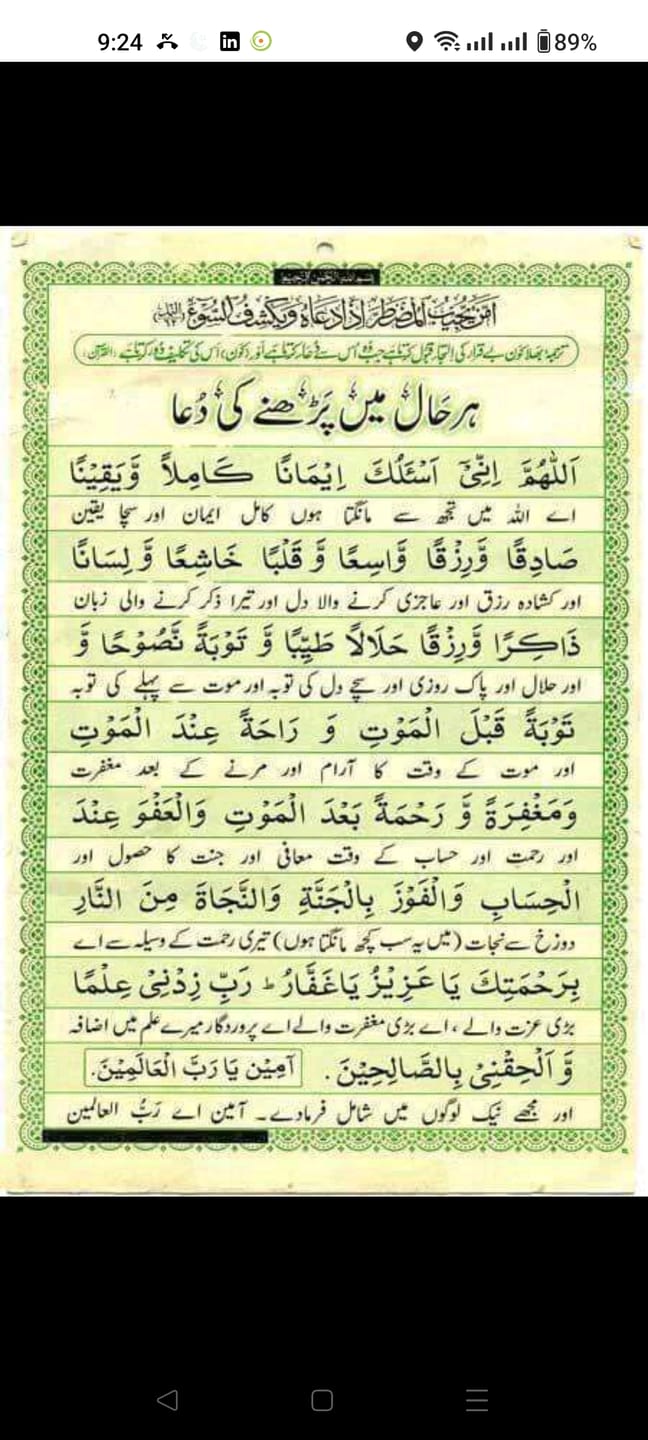 9:24
89%
بسم اللہ الرحمن الرحیم
اَمَّنْ يُّجِيْبُ الْمُضْطَرَّ اِذَا دَعَاهُ وَيَكْشِفُ السُّوْٓءَ (القرآن)
ترجمہ: بھلا کون بے قرار کی التجا قبول کرتا ہے جب وہ اُس سے دُعا کرتا ہے اور (کون) اُس کی تکلیف دُور کرتا ہے (القرآن)
ہر حَال میں پَڑھنے کی دُعا
اَللّٰهُمَّ اِنِّىْٓ اَسْئَلُكَ اِيْمَانًا كَامِلاً وَّيَقِيْنًا
اے اللہ میں تجھ سے مانگتا ہوں کامل ایمان اور سچا یقین
صَادِقًا وَّرِزْقًا وَّاسِعًا وَّ قَلْبًا خَاشِعًا وَّ لِسَانًا
اور کشادہ رزق اور عاجزی کرنے والا دل اور تیرا ذکر کرنے والی زبان
ذَاكِرًا وَّرِزْقًا حَلَالًا طَيِّبًا وَّ تَوْبَةً نَّصُوْحًا وَّ
اور حلال اور پاک روزی اور سچے دل کی توبہ اور موت سے پہلے کی توبہ
تَوْبَةً قَبْلَ الْمَوْتِ وَ رَاحَةً عِنْدَ الْمَوْتِ
اور موت کے وقت کا آرام اور مرنے کے بعد مغفرت
وَمَغْفِرَةً وَّ رَحْمَةً بَعْدَ الْمَوْتِ وَالْعَفْوَ عِنْدَ
اور رحمت اور حساب کے وقت معافی اور جنت کا حصول اور
الْحِسَابِ وَالْفَوْزَ بِالْجَنَّةِ وَالنَّجَاةَ مِنَ النَّارِ
دوزخ سے نجات (میں یہ سب کچھ مانگتا ہوں) تیری رحمت کے وسیلہ سے اے
بِرَحْمَتِكَ يَا عَزِيْزُ يَا غَفَّارُ ط رَبِّ زِدْنِىْ عِلْمًا
بڑی عزت والے، اے بڑی مغفرت والے اے پروردگار میرے علم میں اضافہ
وَّ اَلْحِقْنِىْ بِالصَّالِحِيْنَ. آمِيْن يَا رَبَّ الْعَالَمِيْنَ.
اور مجھے نیک لوگوں میں شامل فرمادے۔ آمین اے رَبُّ العالمین